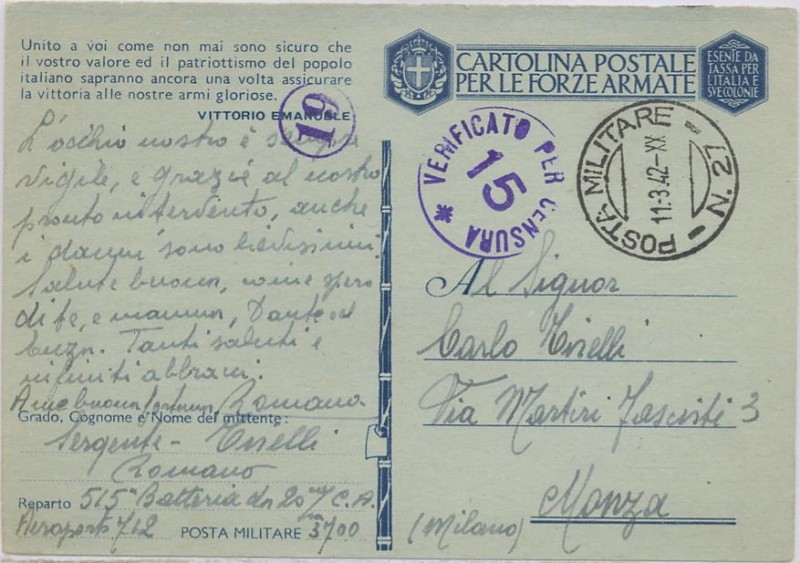 Unito a voi come non mai sono sicuro che
il vostro valore ed il patriottismo del popolo
italiano sapranno ancora una volta assicurare
la vittoria alle nostre armi gloriose.
VITTORIO EMANUELE
19
L'occhio nostro è sempre
vigile, e grazie al nostro
pronto intervento, anche
i danni sono lievissimi.
Salute buona, come spero
di te, e mamma, Dante ed
Tanti saluti e
infiniti abbracci.
Romano
Grado, Cognome e Nome del mittente:
Sergente - Tirelli
Romano
Reparto 515ª Batteria da 20 C. A.
Aeroporto 712
POSTA MILITARE 3700
CARTOLINA POSTALE
PER LE FORZE ARMATE
ESENTE DA
TASSA PER
L'ITALIA E
SVE COLONIE
* VERIFICATO PER CENSURA
15
POSTA MILITARE - N. 27 -
11.3.42-XX
Al Signor
Carlo Tirelli
Via Martiri Fascisti 3
Monza
(Milano)